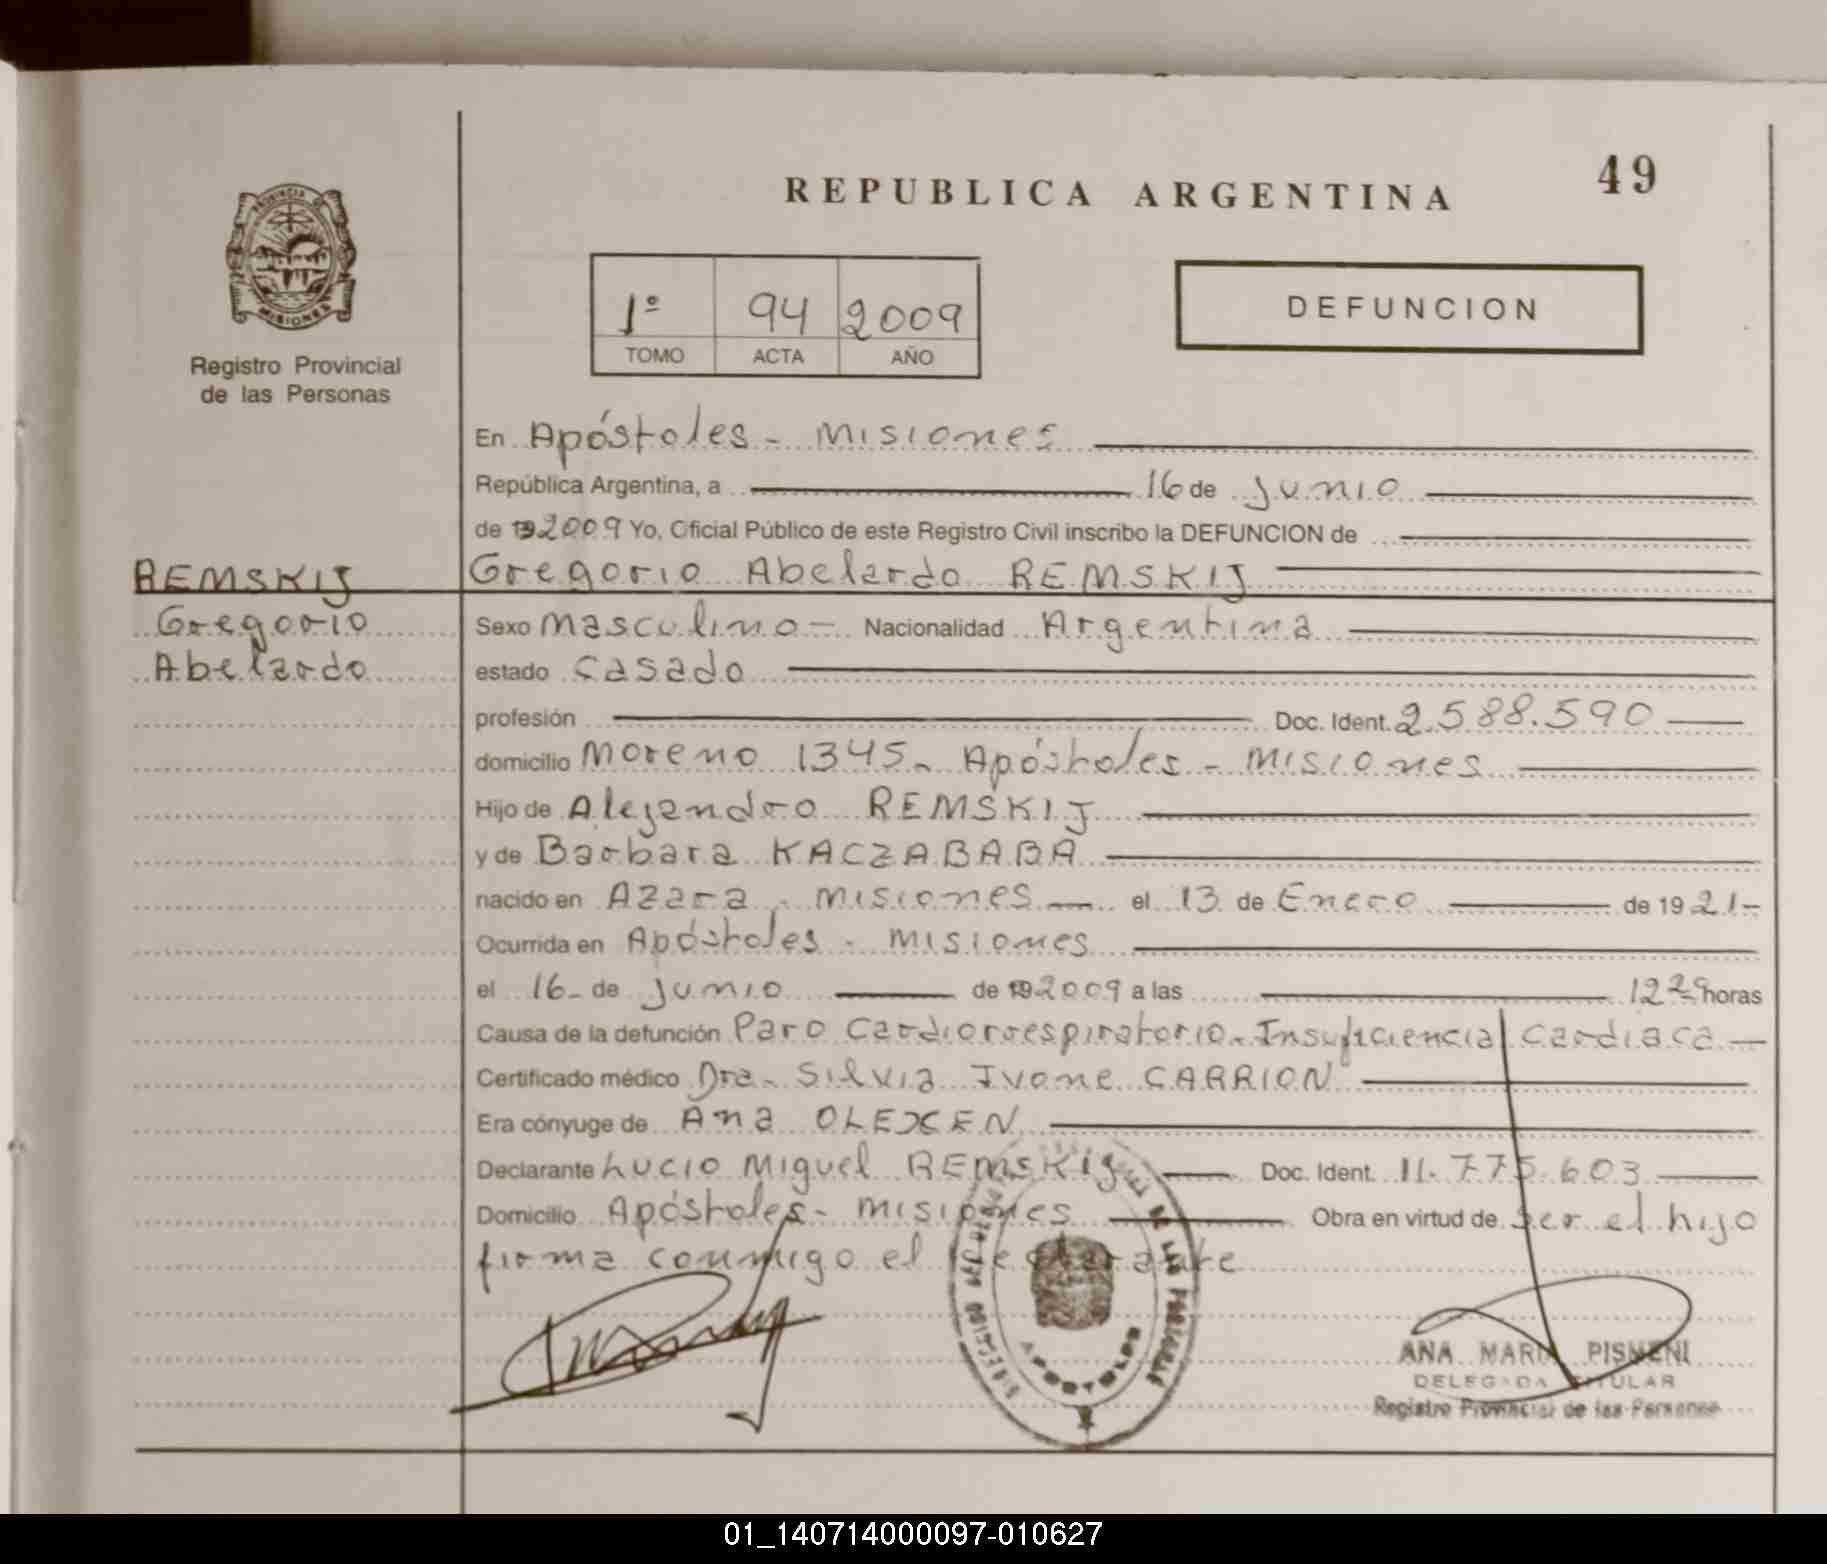 49
REPUBLICA ARGENTINA
PROVINCIA DE
MISIONES
Registro Provincial
de las Personas
1º 94 2009
TOMO ACTA AÑO
DEFUNCION
En Apóstoles - Misiones
República Argentina, a 16 de Junio
de 19 2009 Yo, Oficial Público de este Registro Civil inscribo la DEFUNCION de
REMSKIJ Gregorio Abelardo REMSKIJ
Gregorio Sexo Masculino - Nacionalidad Argentina
Abelardo estado Casado
profesión Doc. Ident. 2.588.590
domicilio Moreno 1345 - Apóstoles - Misiones
Hijo de Alejandro REMSKIJ
y de Barbara KACZABABA
nacido en Azara - Misiones el 13 de Enero de 1921-
Ocurrida en Apóstoles - Misiones
el 16- de Junio de 19 2009 a las 12 29 horas
Causa de la defunción Paro Cardiorrespiratorio - Insuficiencia Cardiaca
Certificado médico Dra. Silvia Ivone CARRION
Era cónyuge de Ana OLEXEN
Declarante Lucio Miguel REMSKIJ Doc. Ident. 11.775.603
Domicilio Apóstoles - Misiones Obra en virtud de Ser el hijo
firma conmigo el declarante
APOSTOLES
ANA MARIA PISMENI
DELEGADA TITULAR
Registro Provincial de las Personas
01_140714000097-010627